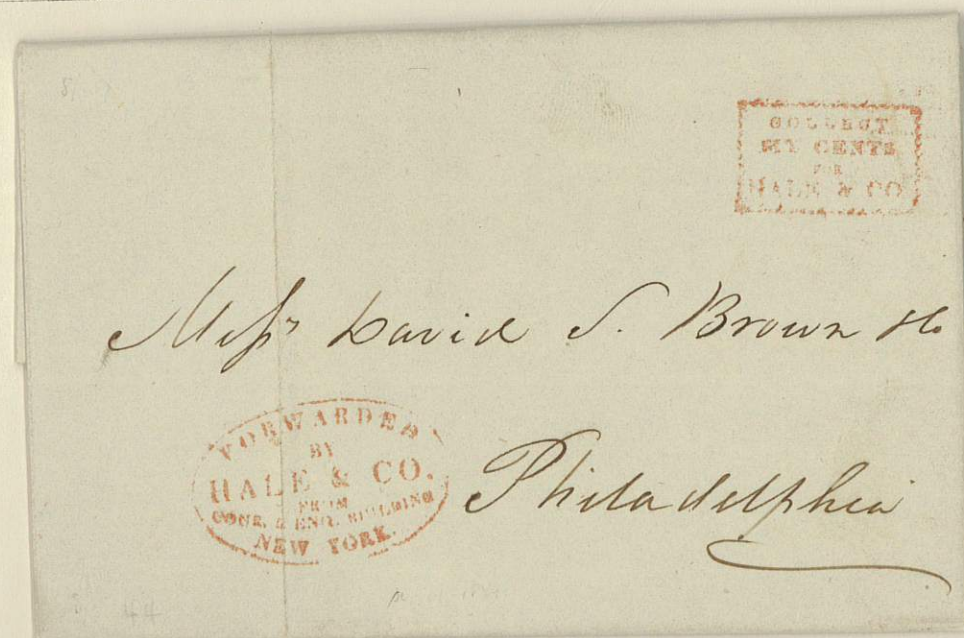 COLLECT
CENTS
FOR
HALE & CO
Messrs David S. Brown & Co
Philadelphia
FORWARDED
BY
HALE & CO.
FROM
COUR. & ENQ. BUILDING
NEW YORK.
44